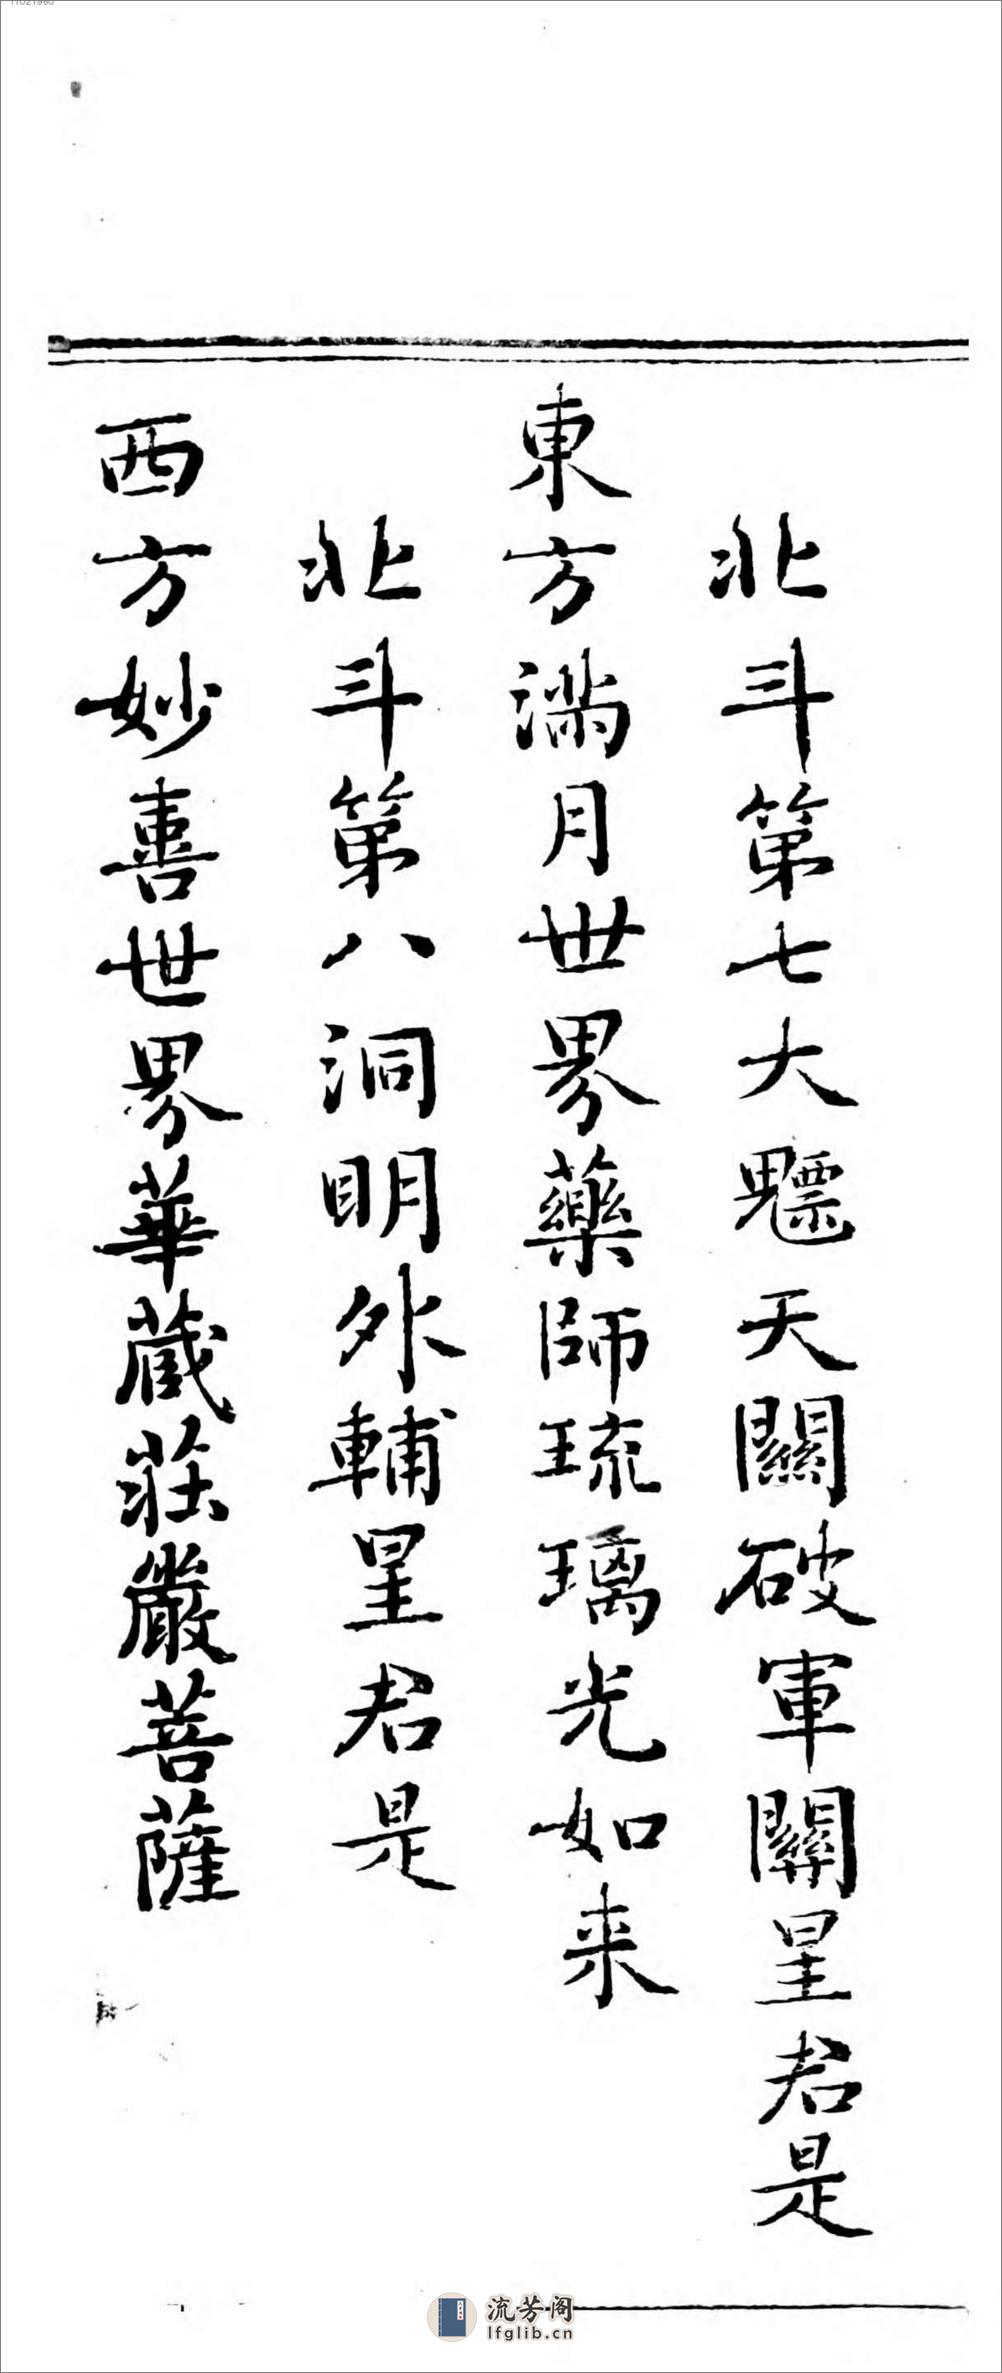 北斗第七大魒天關破軍關星君是
東方滿月世界藥師琉璃光如来
北斗第八洞明外輔星君是
西方妙喜世界華藏莊嚴菩薩
流芳阁
lfglib.cn